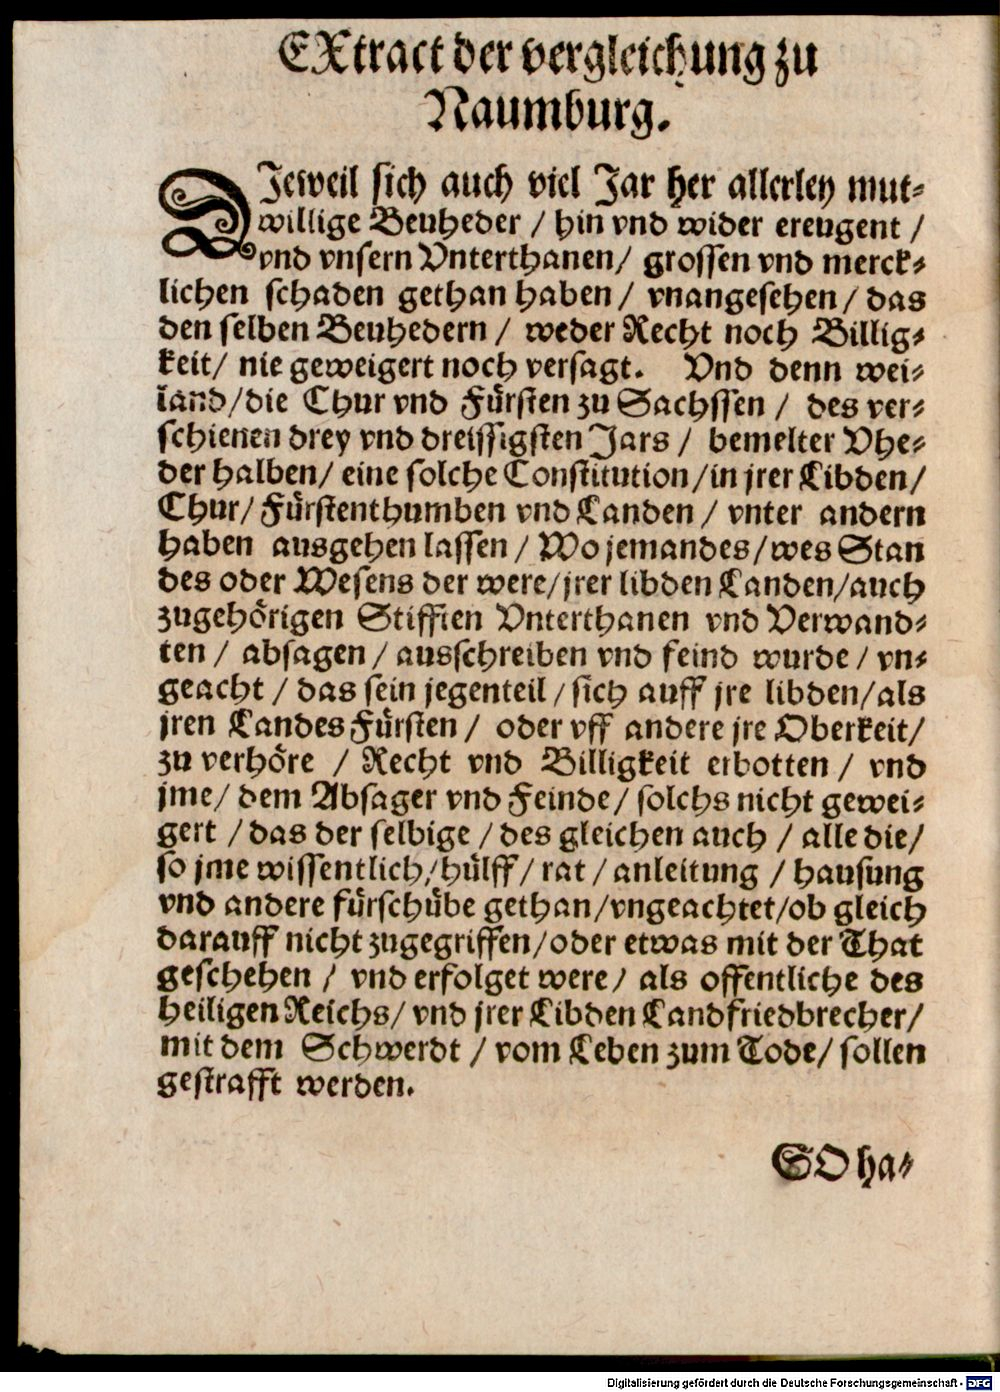 EXtract der vergleichung zu
Naumburg.
DJeweil sich auch viel Jar her allerley mut⸗
willige Beuheder / hin vnd wider ereugent /
vnd vnsern Vnterthanen / grossen vnd merck⸗
lichen schaden gethan haben / vnangesehen / das
den selben Beuhedern / weder Recht noch Billig⸗
keit / nie geweigert noch versagt. Vnd denn wei⸗
land / die Chur vnd Fürsten zu Sachssen / des ver⸗
schienen drey vnd dreissigsten Jars / bemelter Vhe⸗
der halben / eine solche Constitution / in jrer Libden /
Chur / Fürstenthumben vnd Landen / vnter andern
haben ausgehen lassen / Wo jemandes / wes Stan
des oder Wesens der were / jrer libden Landen / auch
zugehörigen Stifften Vnterthanen vnd Verwand⸗
ten / absagen / ausschreiben vnd feind wurde / vn⸗
geacht / das sein jegenteil / sich auff jre libden / als
jren Landes Fürsten / oder vff andere jre Oberkeit /
zu verhöre / Recht vnd Billigkeit erbotten / vnd
jme / dem Absager vnd Feinde / solchs nicht gewei⸗
gert / das der selbige / des gleichen auch / alle die /
so jme wissentlich / hülff / rat / anleitung / hausung
vnd andere fürschübe gethan / vngeachtet / ob gleich
darauff nicht zugegriffen / oder etwas mit der That
geschehen / vnd erfolget were / als offentliche des
heiligen Reichs / vnd jrer Libden Landfriedbrecher /
mit dem Schwerdt / vom Leben zum Tode / sollen
gestrafft werden.
SO ha⸗
Digitalisierung gefördert durch die Deutsche Forschungsgemeinschaft - DFG